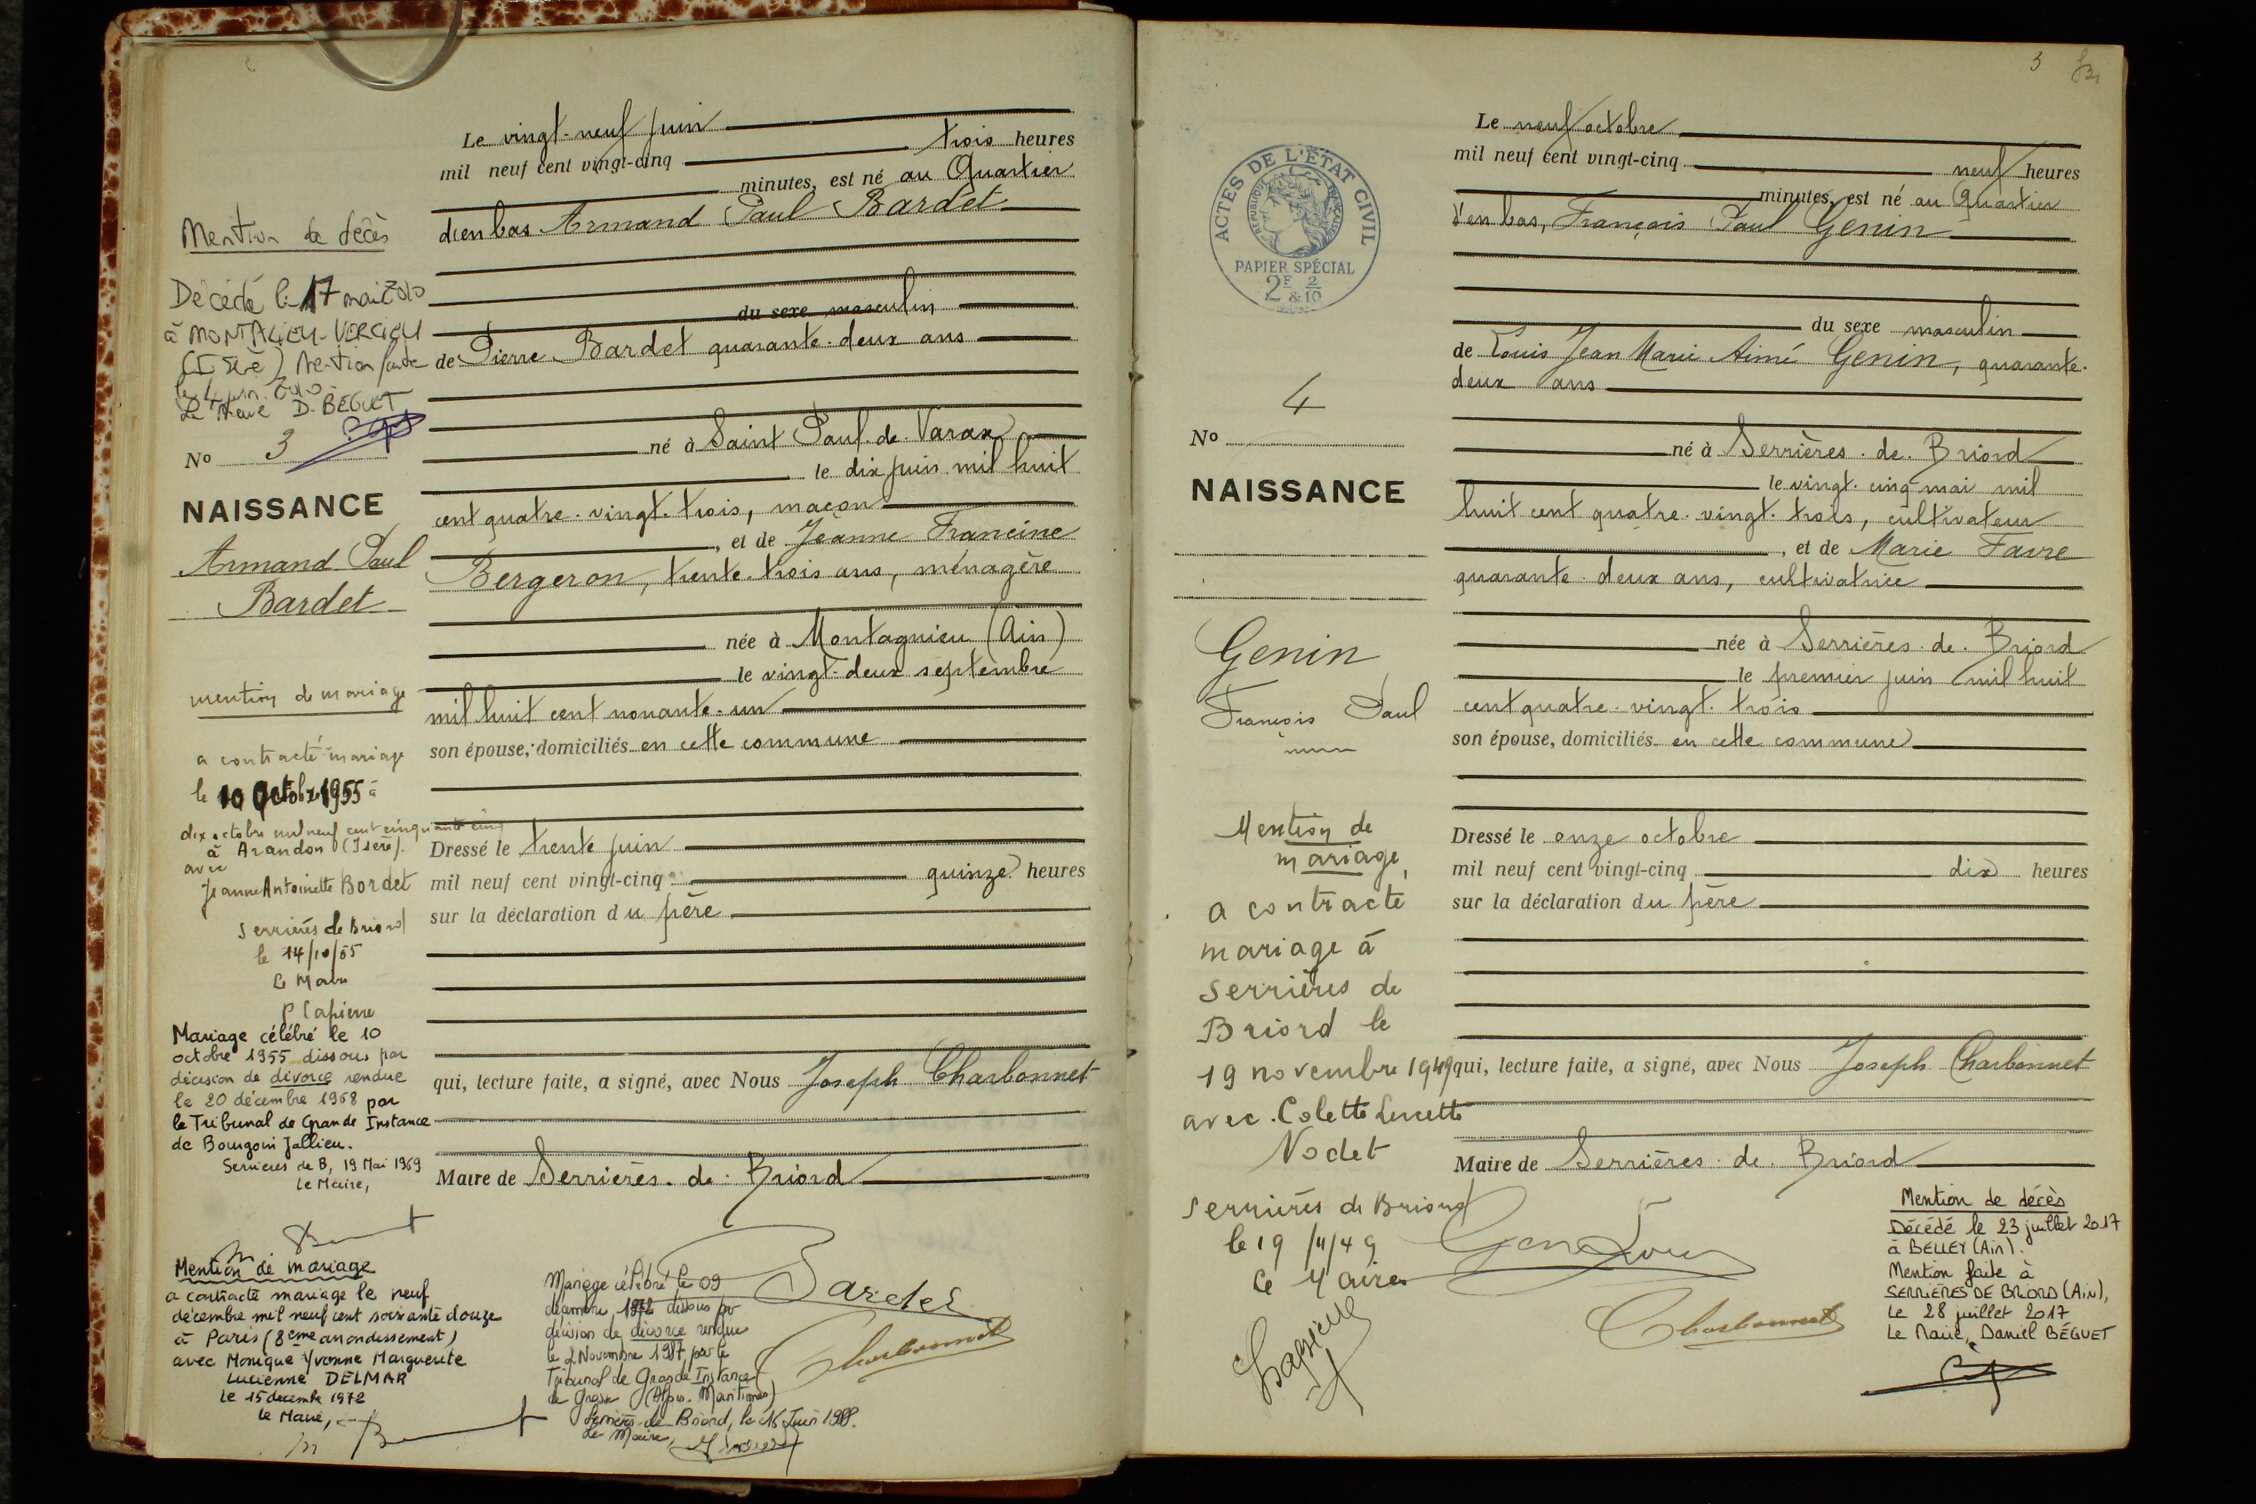 Le vingt-neuf juin
mil neuf cent vingt-cinq trois heures
minutes, est né au Quartier
d'en bas Armand Paul Bardet
du sexe masculin
de Pierre Bardet quarante-deux ans
né à Saint Paul-de-Varax
le dix juin mil huit
cent quatre-vingt-trois, maçon
, et de Jeanne Francine
Bergeron, trente-trois ans, ménagère
née à Montagnieu (Ain)
le vingt-deux septembre
mil huit cent nonante-un
son épouse, domiciliés en cette commune
Dressé le trente juin
mil neuf cent vingt-cinq quinze heures
sur la déclaration du père
qui, lecture faite, a signé, avec Nous Joseph Charbonnet
Maire de Serrières-de-Briord
Bardet
Charbonnet
Mention de décès
Décédé le 17 mai 2010
à MONTALIEU-VERCIEU
(Isère) Mention faite
le 4 juin 2010
Le Maire D. BEGUET
No 3
NAISSANCE
Armand Paul
Bardet
mention de mariage
a contracté mariage
le 10 Octobre 1955 à
dix octobre mil neuf cent cinquante cinq
à Arandon (Isère).
avec
Jeanne Antoinette Bordet
Serrières de Briord
le 14/10/55
Le Maire
P Lapierre
Mariage célébré le 10
octobre 1955 dissous par
décision de divorce rendue
le 20 décembre 1968 par
le Tribunal de Grande Instance
de Bourgoin Jallieu.
Serrières de B, 19 Mai 1969
Le Maire,
Mention de mariage
a contracté mariage le neuf
décembre mil neuf cent soixante douze
à Paris (8ème arrondissement)
avec Monique Yvonne Marguerite
Lucienne DELMAR
Le 15 décembre 1972
Le Maire,
Mariage célébré le 09
décembre 1972 dissous par
décision de divorce rendue
le 2 Novembre 1987 par le
Tribunal de Grande Instance
de Grasse (Alpes-Maritimes)
Serrières-de-Briord, le 16 Juin 1988.
Le Maire,
3
Le neuf octobre
mil neuf cent vingt-cinq neuf heures
minutes, est né au Quartier
d'en bas, François Paul Genin
du sexe masculin
de Louis Jean Marie Aimé Genin, quarante-
deux ans
né à Serrières-de-Briord
le vingt-cinq mai mil
huit cent quatre-vingt-trois, cultivateur
, et de Marie Favre
quarante-deux ans, cultivatrice
née à Serrières-de-Briord
le premier juin mil huit
cent quatre-vingt-trois
son épouse, domiciliés en cette commune
Dressé le onze octobre
mil neuf cent vingt-cinq dix heures
sur la déclaration du père
qui, lecture faite, a signé, avec Nous Joseph Charbonnet
Maire de Serrières-de-Briord
Genin Louis
Charbonnet
ACTES DE L'ÉTAT CIVIL
RÉPUBLIQUE FRANÇAISE
PAPIER SPÉCIAL
2F & 2/10
4
No
NAISSANCE
Genin
François Paul
Mention de
mariage,
a contracté
mariage à
Serrières de
Briord le
19 novembre 1949
avec Colette Lucette
Nodet
Serrières de Briord
le 19/11/49
Le Maire
Lapierre
Mention de décès
Décédé le 23 juillet 2017
à BELLEY (Ain).
Mention faite à
SERRIÈRES DE BRIORD (Ain),
Le 28 juillet 2017
Le Maire, Daniel BÉGUET